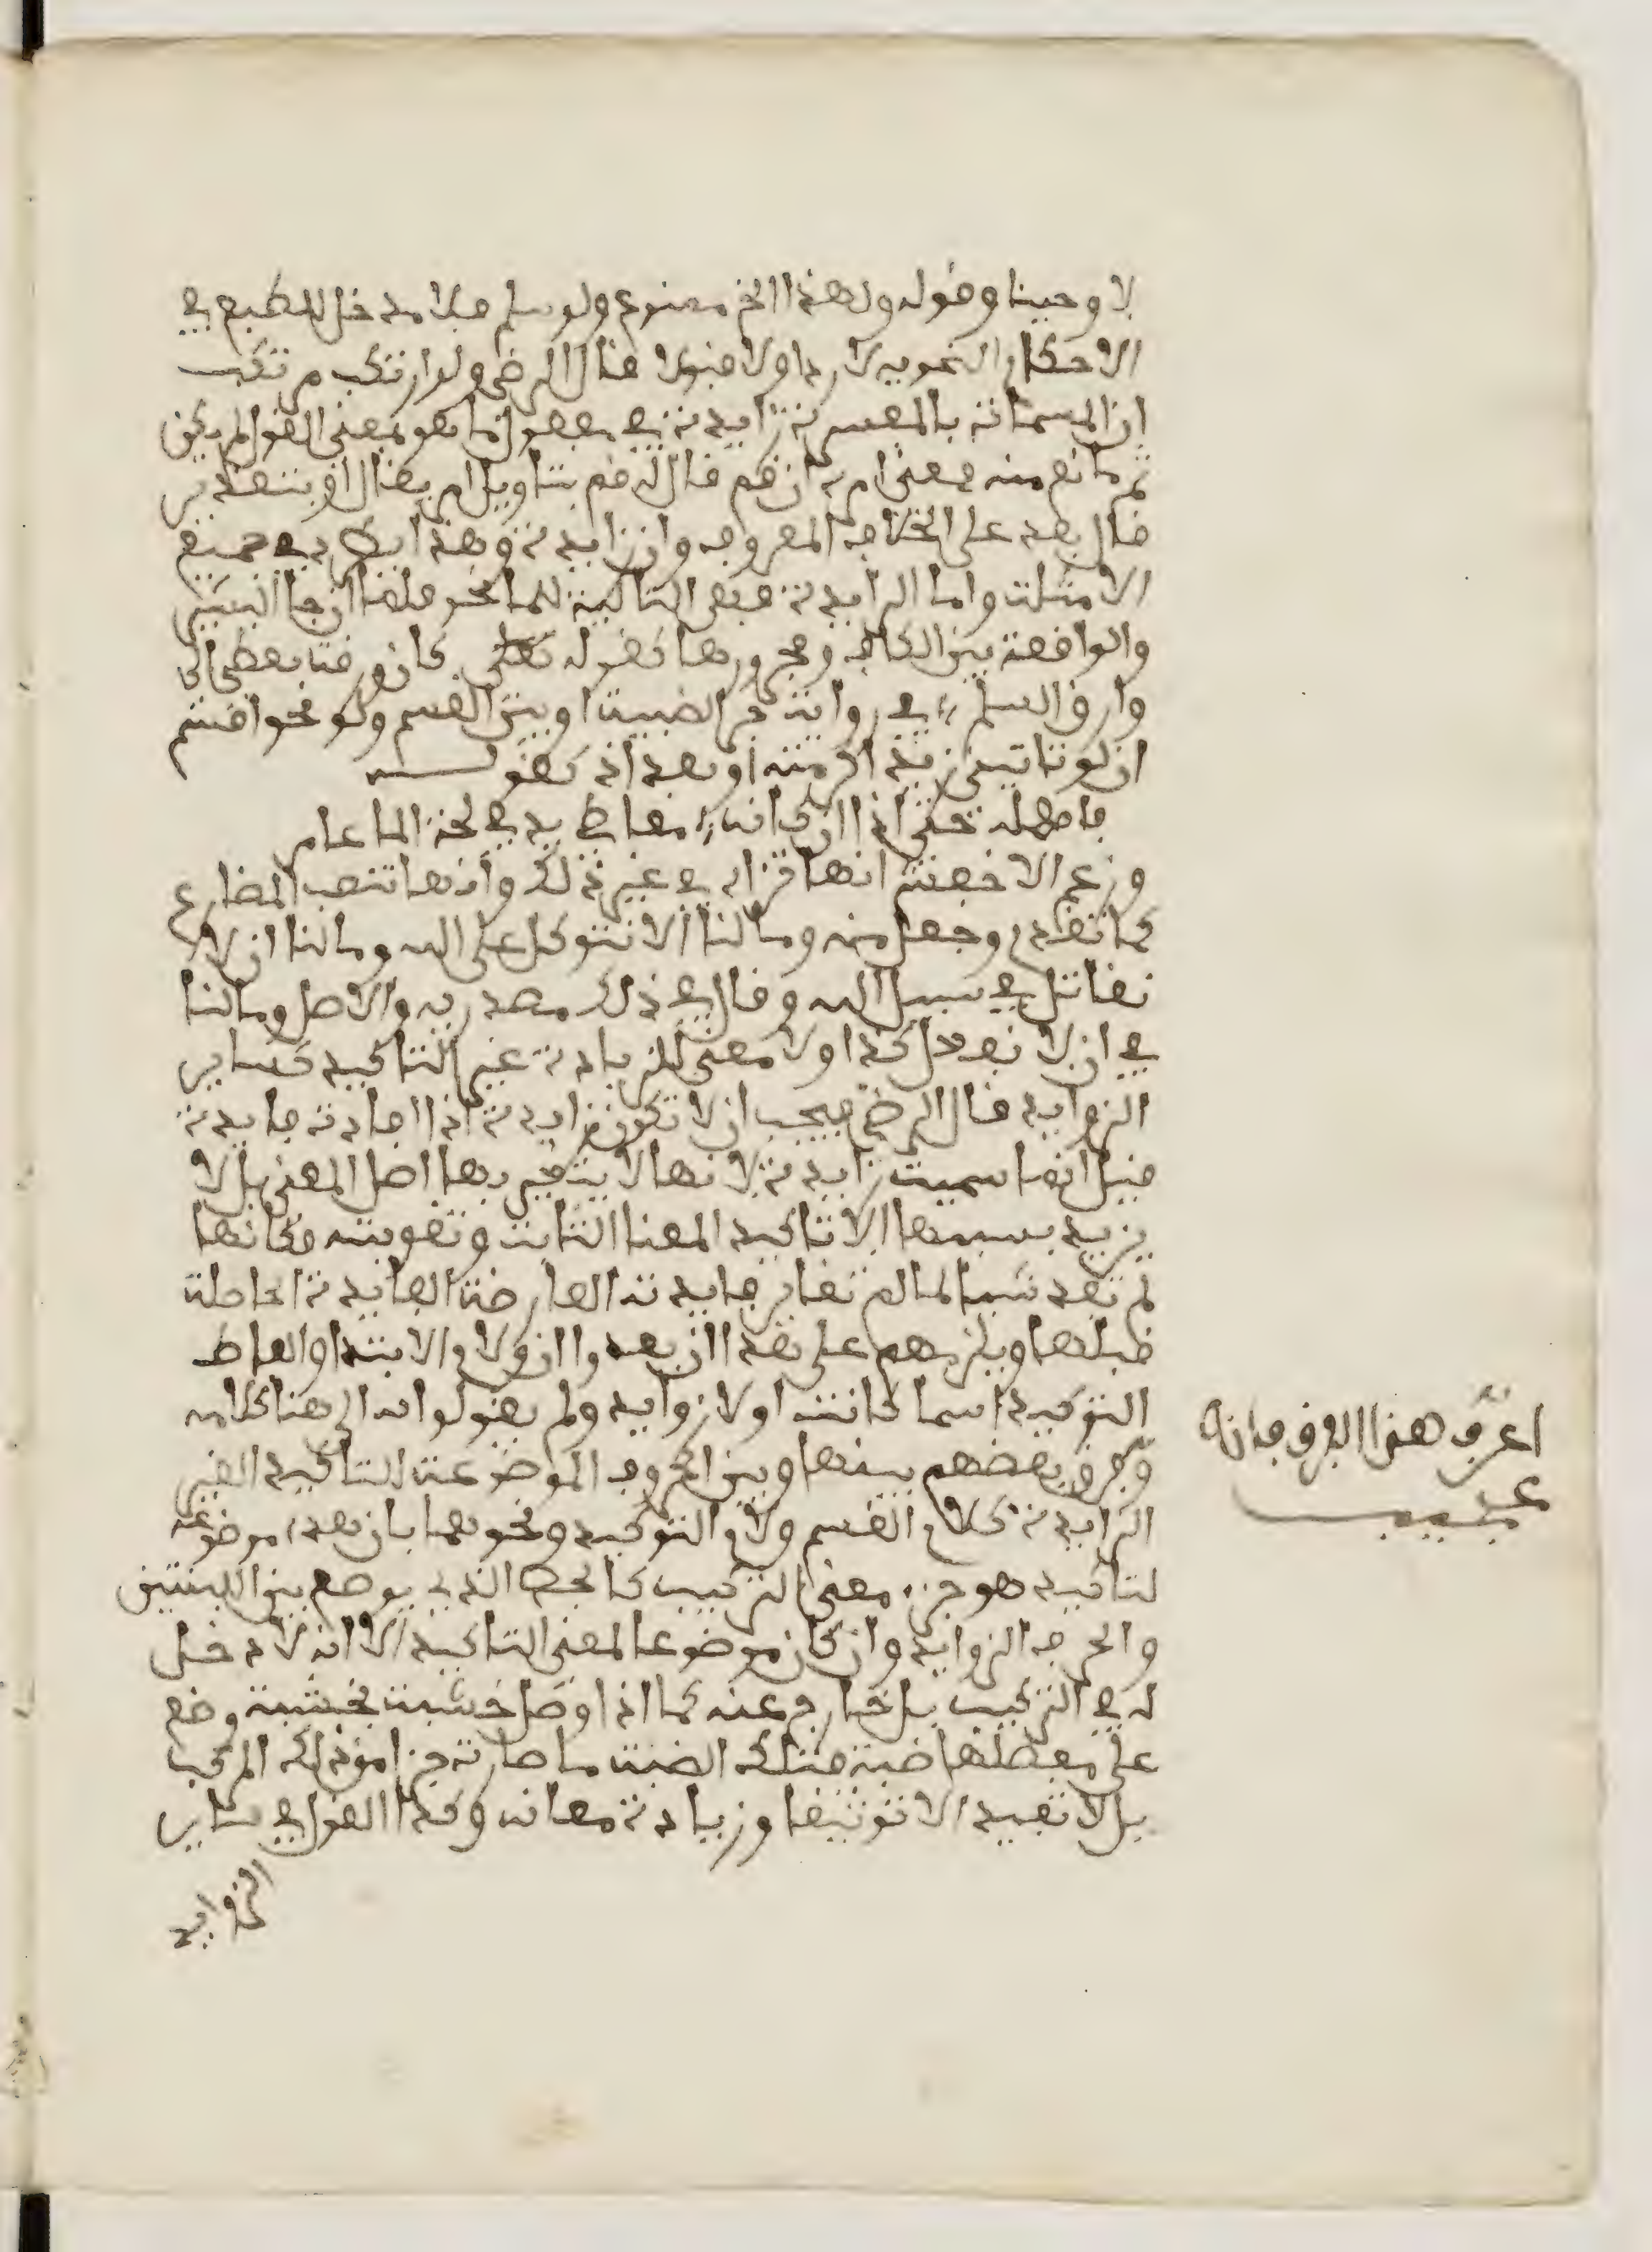 لاوحينا وقوله ولهذا الخ ممنوع ولو سلم فلا مدخل للطبع في
الاحكام النحويه لا ردا ولا قبولا قال الرضي ولو ارتكب مرتكب
ان المسماة بالمفسرة زايدة في مفعول ما هو بمعنى القول لم يكن
ثم مانع منه فمعنى امرته ان قم قال له قم بتاويل امر بقال او بتقدير
قال بعد على الخلاف المعروف وان زايدة وهذا يطرد في جميع
الامثلة واما الزايدة فهي التالية للما نحو فلما ان جا البشير
والواقعة بين الكاف ومجرورها كقوله كان ظبية تعطو الى
وارق السلم في رواية جر الضبية او بين القسم ولو نحو اقسم
ان لو تاتيني زيد اكرمته او بعد اذا كقولــــه
فامهله حتى اذا ان كانه معاطي يد في لجة الما عامر
وزعم الاخفش انها تزاد في غير ذلك وانها تنصب المضارع
كما تقدم وجعل منه وما لنا الا نتوكل على الله وما لنا ان لا
نقاتل في سبيل الله وقال في ذلك مصدريه والاصل وما لنا
في ان لا نفعل كذا ولا معنى للزيادة غير التاكيد كساير
الزوايد قال الرضي فيجب ان لا تكون زايدة اذا افادة فايدة
قيل انما سميت زايدة لانها لا يتغير بها اصل المعنى بل لا
يزيد بسببها الا تاكيد المعنا الثابت وتقويته فكانها
لم تفد شيا لما لم تغاير فايدته العارضة الفايدة الحاصلة
قبلها ويلزمهم على هذا ان يعدوا ان ولام الابتدا والفاظ
التوكيد اسما كانت او لا زوايد ولم يقولوا به الى هنا كلامه
وفرق بعضهم بينها وبين الحروف الموضوعة للتاكيد الغير
الزايدة كلام القسم ولام التوكيد ونحوهما بان هذه موضوعة
لتاكيد هو جزء معنى التركيب كالجص الذي يوضع بين اللبنتين
والحرف الزوايد وان كان موضوعا لمعنى التاكيد الا انه لا دخل
له في التركيب بل خارج عنه كما اذا اوصل خشبة بخشبة وضع
على مفصلها ضبة فتلك الضبة ما صارت جزا من ذلك المركب
بل لا تفيد الا توثيقا وزيادة معانه وكذا القول في ساير
الزوايد
اعرف هذا الفرق فانه
عجيب